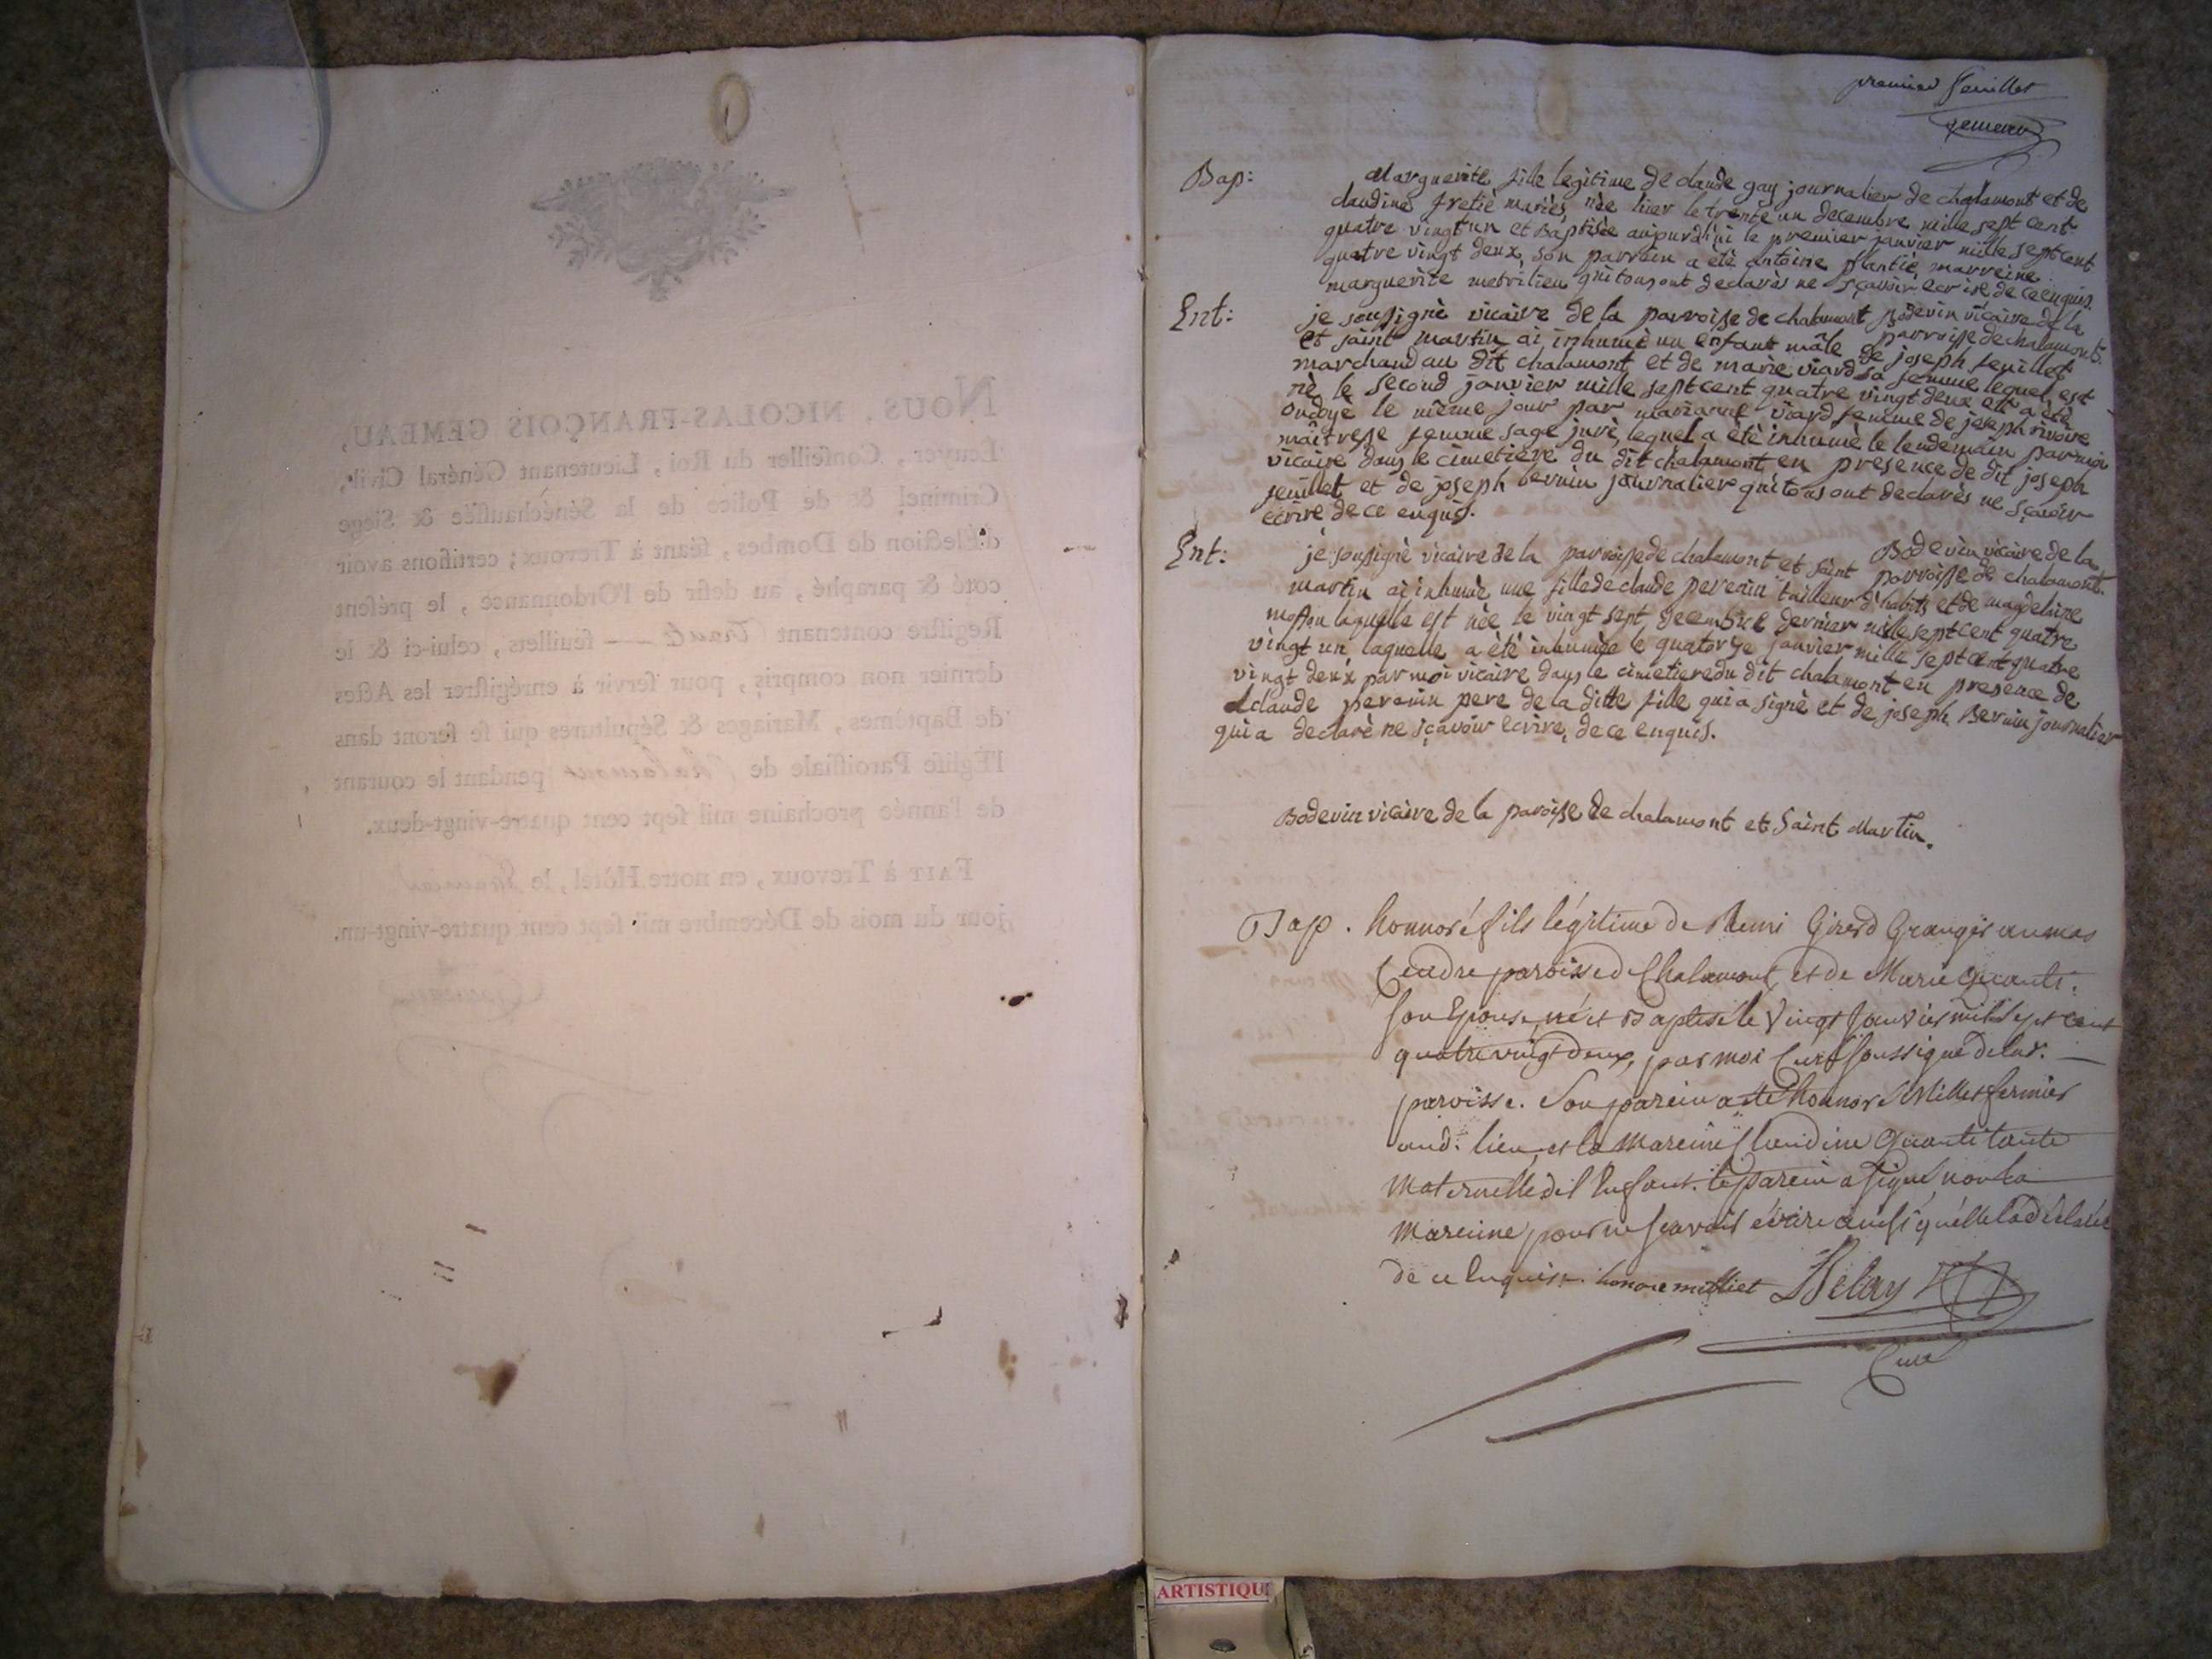 NOUS, NICOLAS-FRANÇOIS GEMEAU,
Ecuyer, Conseiller du Roi, Lieutenant Général Civil,
Criminel & de Police de la Sénéchaussée & Siege
d'Élection de Dombes, séant à Trevoux; certifions avoir
coté & paraphé, au desir de l'Ordonnance, le présent
Registre contenant Trente — feuillets, celui-ci & le
dernier non compris, pour servir à enrégistrer les Actes
de Baptêmes, Mariages & Sépultures qui se feront dans
l'Église Paroissiale de Chalamont pendant le courant
de l'année prochaine mil sept cent quatre-vingt-deux.
FAIT à Trevoux, en notre Hôtel, le Premier
jour du mois de Décembre mil sept cent quatre-vingt-un.
premier feuillet
gemeau
Bap: Marguerite fille legitime de claude gay journalier de chalamont et de
claudine fretiè mariès, nèe hier le trente un decembre mille sept cent
quatre vingt un et Baptisèe aujourd'hui le premier janvier mille sept cent
quatre vingt deux, son parrain a ètè antoine plantiè, marreine
marguerite qui tous ont declarès ne sçavoir ecrire de ce enquis.
Bodevin vicaire de la
parroisse de chalamont.
Ent: je soussignè vicaire de la parroisse de chalamont
et saint martin ai inhumè un enfant mâle de joseph feuillet
marchand au dit chalamont et de marie viard sa femme lequel est
nè le second janvier mille sept cent quatre vingt deux et a ètè
ondoyè le même jour par marianne viard femme de joseph rivoire
maîtresse femme sage jurè, lequel a ètè inhumè le lendemain par moi
vicaire dans le cimetiere du dit chalamont en presence de dit joseph
feuillet et de joseph bernin journalier qui tous ont declarès ne sçavoir
ecrire de ce enquis.
Bodevin vicaire de la
parroisse de chalamont.
Ent: je soussignè vicaire de la parroisse de chalamont et saint
martin ai inhumè une fille de claude pevenin tailleur d'habits et de magdelaine
laquelle est nèe le vingt sept decembre dernier mille sept cent quatre
vingt un laquelle a ètè inhumèe le quatorze janvier mille sept cent quatre
vingt deux par moi vicaire dans le cimetiere du dit chalamont en presence de
claude pevenin pere de la ditte fille qui a signè et de joseph Bernin journalier
qui a declarè ne sçavoir ecrire, de ce enquis.
Bodevin vicaire de la paroisse de chalamont et Saint Martin.
Bap. honnoré fils légitime de Remi Girerd Granger au mas
Cendre paroisse de Chalamont, et de Marie
son Epouse, né et Baptisé le Vingt Janvier mil sept cent
quatre vingt deux, par moi Curé soussigné de lad.
paroisse. Son parein a été honnoré Milliet fermier
aud. lieu, et la mareine Claudine tante
maternelle de l'Enfant. le parein a signé, non la
mareine pour ne scavoir écrire ainsi qu'elle l'a déclaré
de ce Enquise. honore milliet Delay
Curé
ARTISTIQU